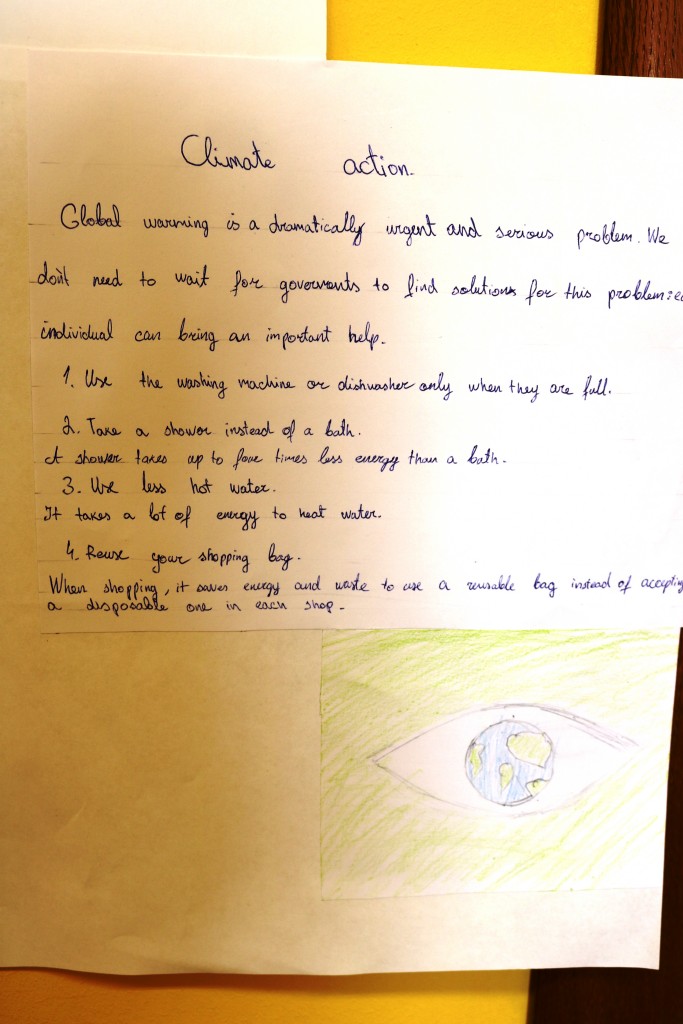 Climate action.
Global warming is a dramatically urgent and serious problem. We
don't need to wait for goverments to find solutions for this problem:
individual can bring an important help.
1. Use the washing machine or dishwasher only when they are full.
2. Take a shower instead of a bath.
A shower takes up to four times less energy than a bath.
3. Use less hot water.
It takes a lot of energy to heat water.
4. Reuse your shopping bag.
When shopping, it saves energy and waste to use a reusable bag instead of accepting
a disposable one in each shop.